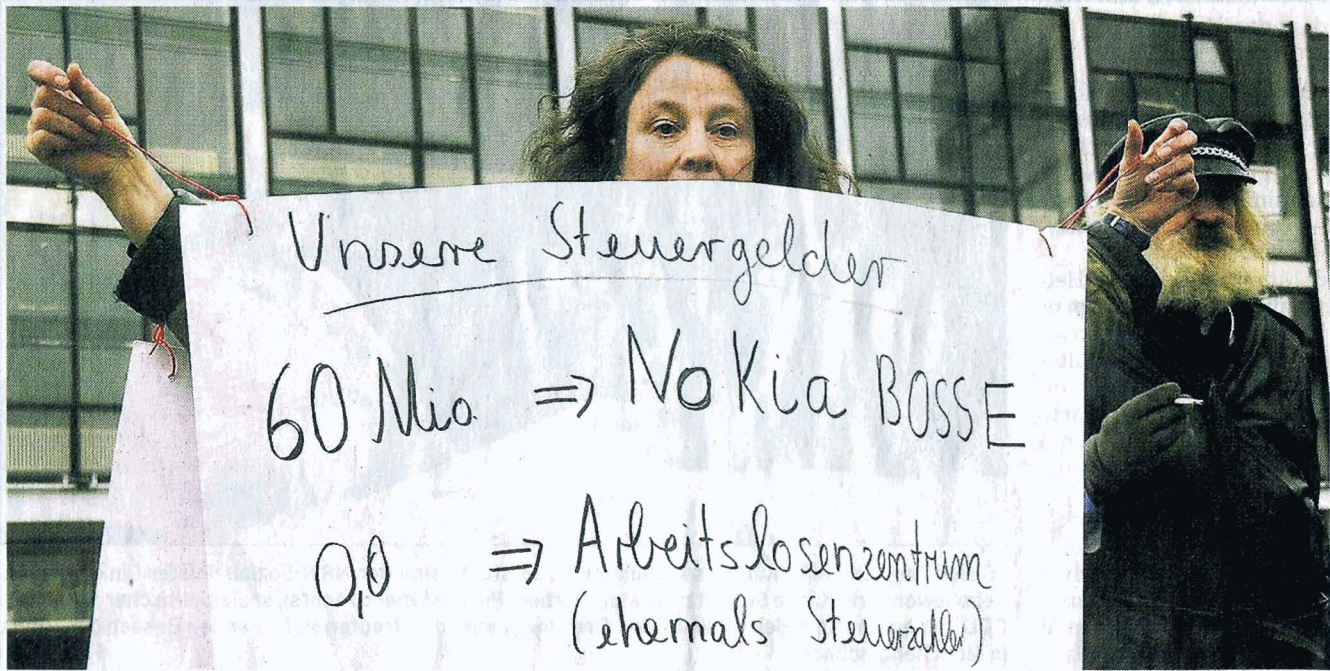 Unsere Steuergelder
60 Mio. ⇒ Nokia BOSSE
0,0 ⇒ Arbeitslosenzentrum
(ehemals Steuerzahler)